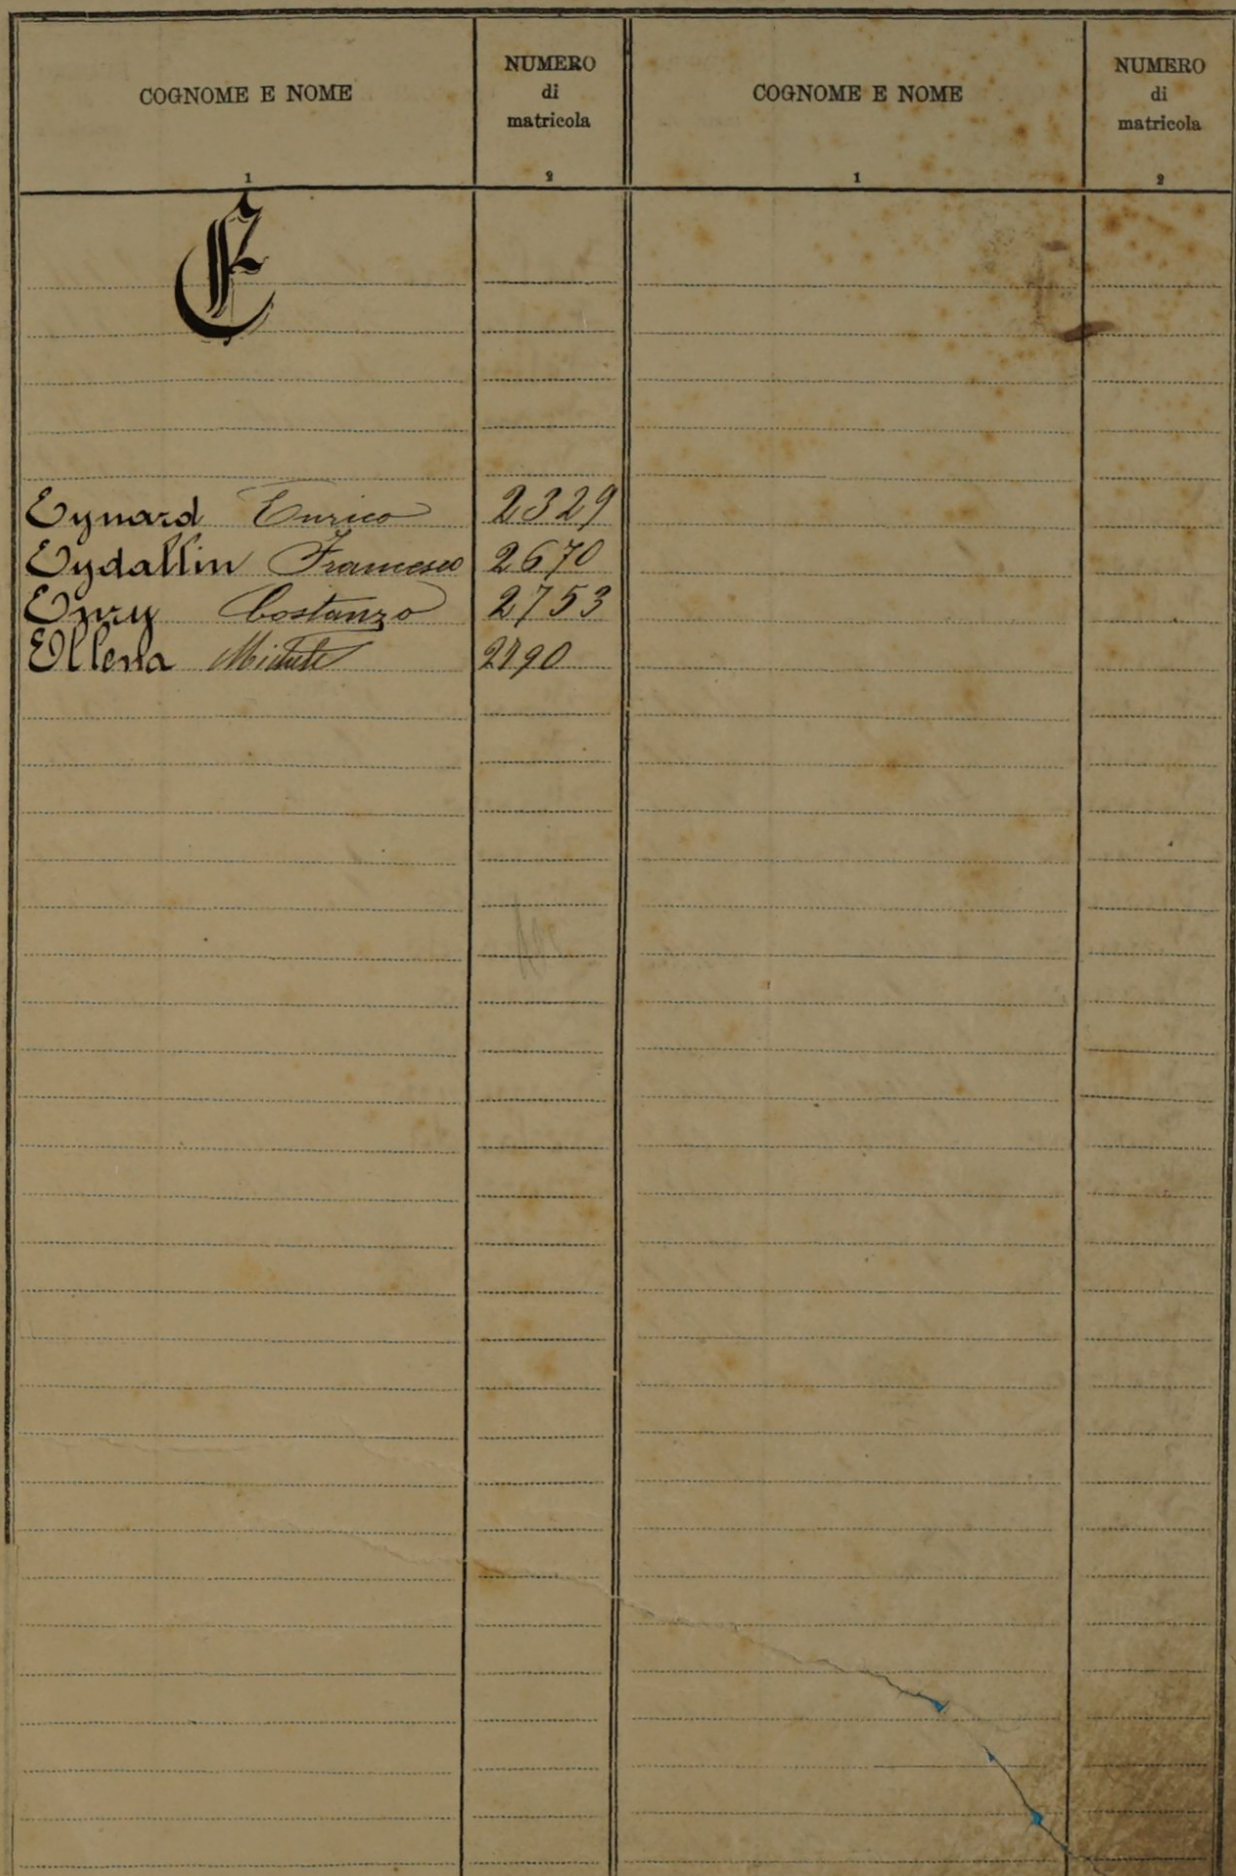 COGNOME E NOME
NUMERO
di
matricola
COGNOME E NOME
NUMERO
di
matricola
1
2
1
2
E
Eynard Enrico 2329
Eydallin Francesco 2670
Costanzo 2753
Ellena Michele